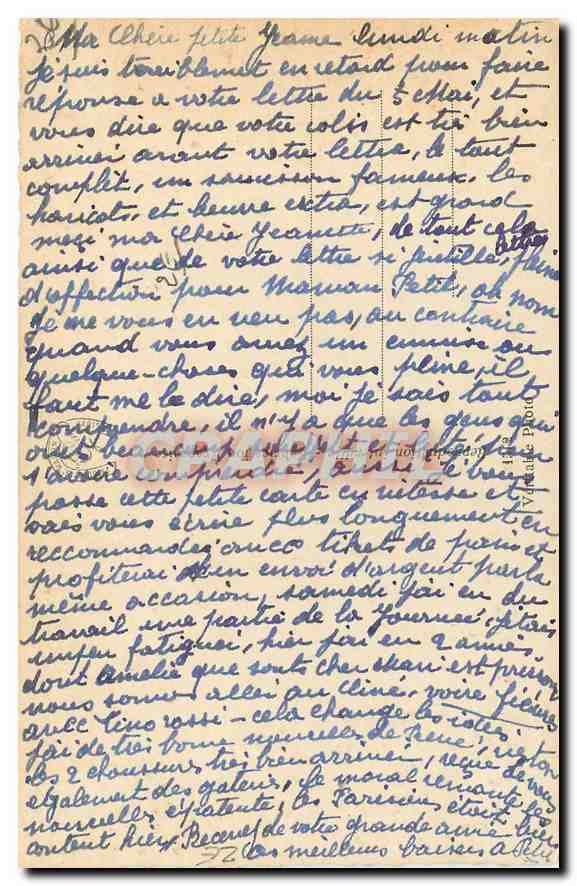 Ma Chère petite Jeanne lundi matin
je suis terriblement en retard pour faire
réponse a votre lettre du 5 Mai, et
vous dire que votre colis est tré bien
arrivéi avant votre lettre, le tout
complêt, un saucisson fameux, les
haricots, et beurre extra, est grand
merçi ma Chère Jeannette, de tout cela
ainsi que de votre lettre si gentille,
d'affection pour Maman Petit, oh nom
Je ne vous en veu pas, au contraire
quand vous avez un ennuie ou
quelque-choses qui vous peine, il
faut me le dire, moi je sais tout
comprendre, il n'y a que les gens qui
ont beaucoup souffert
s'avoire comprendre, aussi
passe cette petite carte en vitesse et
vais vous écrire plus longuement en
reccommandez avecc tikets de pain et
profiterai d'un envoi d'argent par la
même occasion, samedi j'ai eu du
travail une partie de la journeé, j'etais
un peu fatigueé, hier j'ai eu 2 amies
dont Amelie que
nous sommes alleé au Cliné, voire fièvres
avecc Tino rossi - cela change les idées
j'ai de trés bonne nouvelles de René,
les 2 chaussures trés bien arriveé, reçue de vous
egalement des gateaux, le moral remonte
nouvelles epatente, les Parisiens
content hier Recevez de votre grande amie
les meilleurs baisers
72
Véritable Photo
CRAPHIL